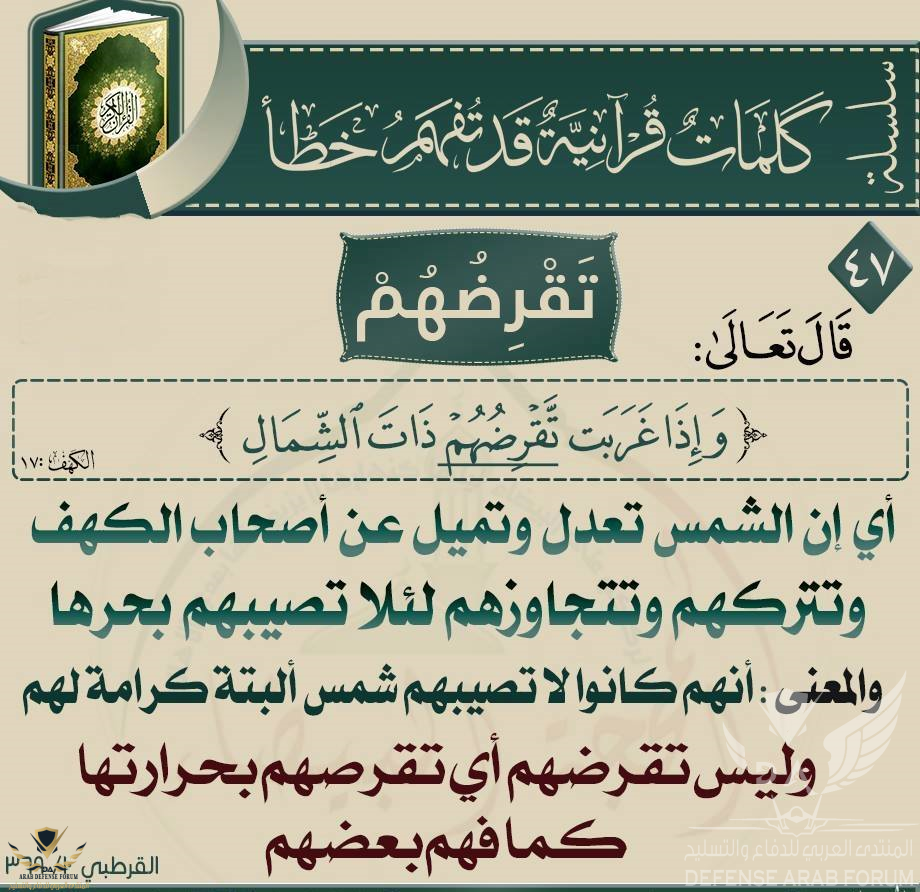 سلسلة
كَلِمَاتٌ قُرْآنِيَّةٌ قَدْ تُفْهَمُ خَطَأً
القرآن الكريم
٤٧
تَقْرِضُهُمْ
قَالَ تَعَالَىٰ:
﴿ وَإِذَا غَرَبَت تَّقْرِضُهُمْ ذَاتَ ٱلشِّمَالِ ﴾
الكهف: ١٧
أي إن الشمس تعدل وتميل عن أصحاب الكهف
وتتركهم وتتجاوزهم لئلا تصيبهم بحرها
والمعنى : أنهم كانوا لا تصيبهم شمس ألبتة كرامة لهم
وليس تقرضهم أي تقرصهم بحرارتها
كما فهم بعضهم
القرطبي
ARAB DEFENSE FORUM
المنتدى العربي للدفاع والتسليح
DEFENSE ARAB FORUM